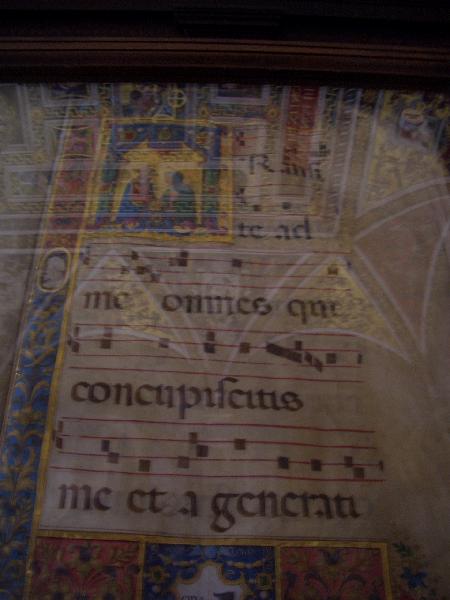 Ranſi
te ad
me omnes qui
concupiſcitis
me et a generati